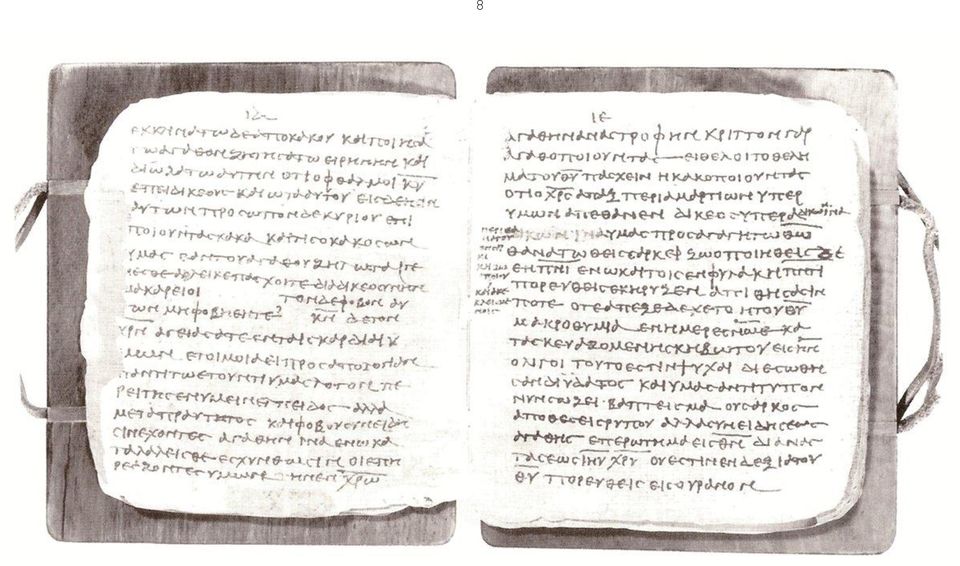 ΙΔ
ΕΚΚΙΝΑΤΩΔΕΑΠΟΚΑΚΟΥ ΚΑΙΠΟΙΗCΑ
ΤΩΑΓΑΘΟΝΖΗΤΗCΑΤΩ ΕΙΡΗΝΗΝ ΚΑΙ
ΔΙΩΞΑΤΩΑΥΤΗΝ ΟΤΙΟΦΘΑΛΜΟΙ ΚΥ
ΕΠΕΙΔΙΚΕΟΥC ΚΑΙΩΤΑΑΥΤΟΥ ΕΙCΔΕΗCΙΝ
ΑΥΤΩΝΠΡΟCΩΠΟΝΔΕΚΥΡΙΟΥ ΕΠΙ
ΠΟΙΟΥΝΤΑCΚΑΚΑ ΚΑΙΤΙCΟΚΑΚΟCΩΝ
ΥΜΑC ΕΑΝΤΟΥΑΓΑΘΟΥΖΗΛΩΤΑΙΓΕ
ΝΕCΘΕΑΛΛΕΙΚΕΠΑCΧΟΙΤΕΔΙΑΔΙΚΕΟCΥΝΗΝ
ΜΑΚΑΡΕΙΟΙ ΤΟΝΔΕΦΟΒΟΝ ΑΥ
ΤΩΝ ΜΗΦΟΒΗΘΗΤΕ ΚΝ ΔΕΤΟΝ
ΧΡΝ ΑΓΕΙΑCΑΤΕΕΝΤΑΙCΚΑΡΔΙΑΙΥ
ΜΩΝ ΕΤΟΙΜΟΙΑΕΙΠΡΟCΑΠΟΛΟΓΙΑΝ
ΠΑΝΤΙΤΩΕΤΟΥΝΤΙΥΜΑCΛΟΓΟΝ ΠΕ
ΡΕΙΤΗCΕΝΥΜΕΙΝΕΛΠΕΙΔΟC ΑΛΛΑ
ΜΕΤΑΠΡΑΥΤΗΤΟC ΚΑΙΦΟΒΟΥCΥΝΕΙΔΗ
CΙΝΕΧΟΝΤΕC ΑΓΑΘΗΝ ΙΝΑΕΝΩΚΑ
ΤΑΛΑΛΕΙCΘΕ ΕCΧΥΝΘΩCΙΝ ΟΙΕΠΗ
ΡΕΑΖΟΝΤΕCΥΜΩΝ ΗΝΕΝ ΧΡΩ
8
ΙΕ
ΑΓΑΘΗΝΑΝΑCΤΡΟΦΗΝ ΚΡΙΤΤΟΝΓΑΡ
ΑΓΑΘΟΠΟΙΟΥΝΤΑC ΕΙΘΕΛΟΙΤΟΘΕΛΗ
ΜΑΤΟΥΘΥ ΠΑCΧΕΙΝ ΗΚΑΚΟΠΟΙΟΥΝΤΑC
ΟΤΙΟΧΡC ΑΠΑΞ ΠΕΡΙΑΜΑΡΤΙΩΝΥΠΕΡ
ΥΜΩΝ ΑΠΕΘΑΝΕΝ ΔΙΚΕΟCΥΠΕΡΑΔΙΚΩΝ
ΙΝΑΥΜΑCΠΡΟCΑΓΑΓΗΤΩΘΩ
ΘΑΝΑΤΩΘΕΙCCΑΡΚΕΙ ΖΩΟΠΟΙΗΘΕΙCΔΕ
ΕΝΠΝΙ ΕΝΩΚΑΙΤΟΙCΕΝΦΥΛΑΚΗΠΝΙ
ΠΟΡΕΥΘΕΙCΕΚΗΡΥΞΕΝ ΑΠΙΘΗCΑCΙΝ
ΠΟΤΕ ΟΤΕΑΠΕΞΕΔΕΧΕΤΟ ΗΤΟΥΘΥ
ΜΑΚΡΟΘΥΜΙΑ ΕΝΗΜΕΡΕCΝΩΕ ΚΑ
ΤΑCΚΕΥΑΖΟΜΕΝΗCΚΗΒΩΤΟΥ ΕΙCΗΝ
ΟΛΙΓΟΙ ΤΟΥΤΕCΤΙΝΗΨΥΧΑΙ ΔΙΕCΩΘΗ
CΑΝΔΙΥΔΑΤΟC ΚΑΙΥΜΑCΑΝΤΙΤΥΠΟΝ
ΝΥΝCΩΖΕΙ ΒΑΠΤΕΙCΜΑ ΟΥCΑΡΚΟC
ΑΠΟΘΕCΕΙCΡΥΠΟΥ ΑΛΛΑCΥΝΕΙΔΗCΕΩC
ΑΓΑΘΗC ΕΠΕΡΩΤΗΜΑΕΙCΘΝ ΔΙΑΝΑC
ΤΑCΕΩCΙΗΥ ΧΡΥ ΟΥΕCΤΙΝΕΝΔΕΞΙΑΤΟΥ
ΘΥ ΠΟΡΕΥΘΕΙC ΕΙCΟΥΡΑΝΟΝ